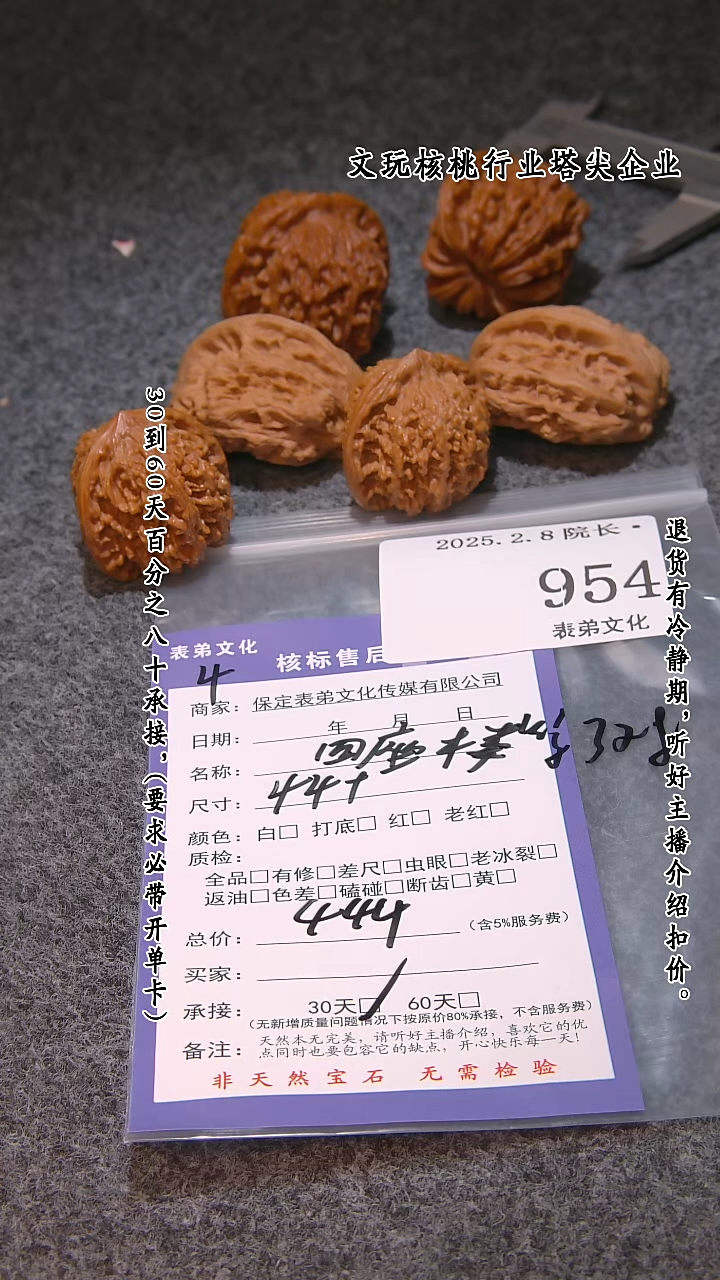 文玩核桃行业塔尖企业
30到60天百分之八十承接，(要求必带开单卡)
退货有冷静期，听好主播介绍扣价。
2025.2.8 院长·
954
表弟文化
表弟文化
核标售后
4
商家：保定表弟文化传媒有限公司
日期： 年 月 日
名称： 3对
尺寸：44+
颜色：白□ 打底□ 红□ 老红□
质检：
全品□有修□差尺□虫眼□老冰裂□
返油□色差□磕碰□断齿□黄□
总价：444 (含5%服务费)
买家：
承接： 30天□ 60天□
(无新增质量问题情况下按原价80%承接，不含服务费)
备注：天然本无完美，请听好主播介绍，喜欢它的优
点同时也要包容它的缺点，开心快乐每一天！
非天然宝石 无需检验